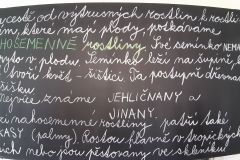 cestě od výtrusných rostlin k rostli
ím, které mají plody, potkáváme
HOSEMENNÉ rostliny. Své semínko NEMA
ryto v plodu. Semínko leží na šupině, k
tvoří květ - šištici. Ta postupně dřevna
šišku.
Nejvíce známe JEHLIČNANY a
JINANY.
zi nahosemenné rostliny patří také
KASY (palmy). Rostou hlavně v tropických
ích nebo jsou pěstovány ve skleníku